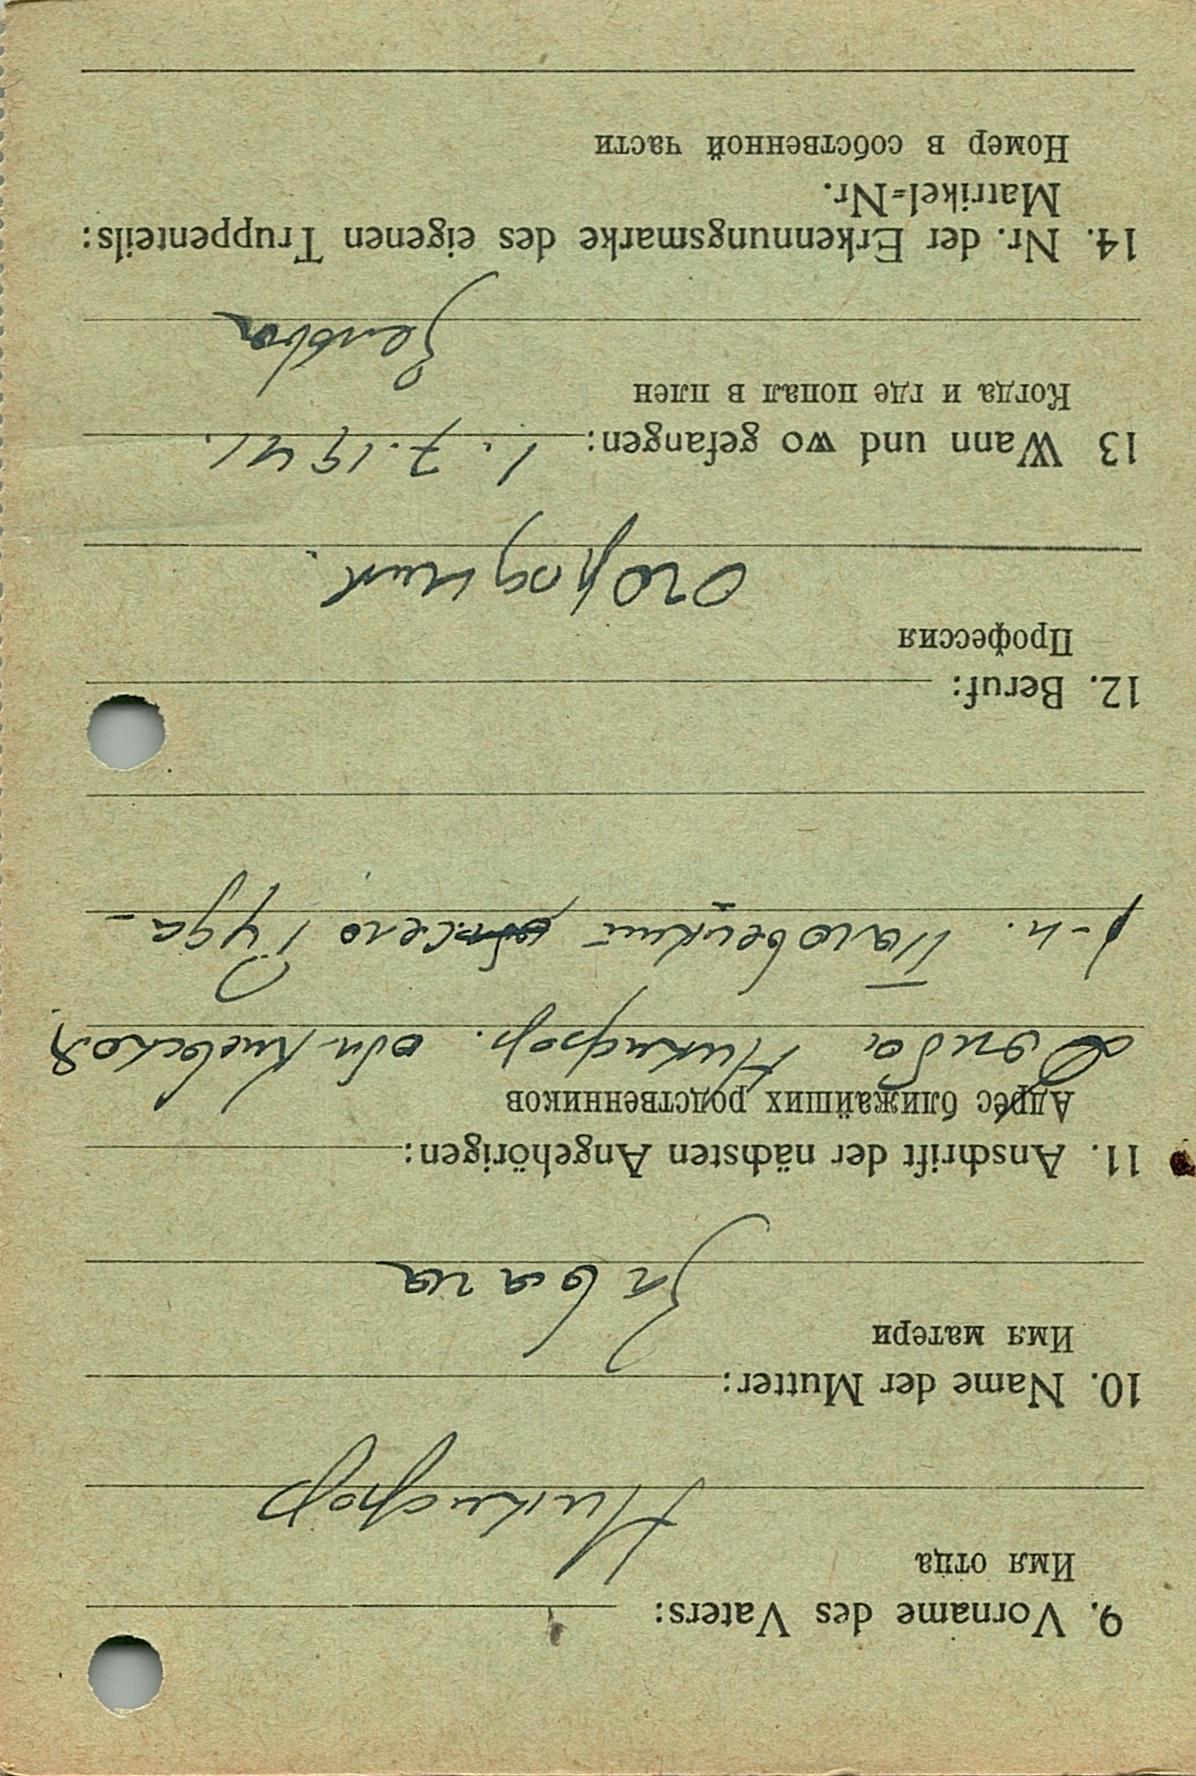 9. Vorname des Vaters:
Имя отца
Никифор
10. Name der Mutter:
Имя матери
11. Anschrift der nächsten Angehörigen:
Адрес ближайших родственников
Никифор. обл Киевской,
р-н. село Руда-
12. Beruf:
Профессия
огородник.
13 Wann und wo gefangen: 1.7.1941.
Когда и где попал в плен
14. Nr. der Erkennungsmarke des eigenen Truppenteils:
Matrikel=Nr.
Номер в собственной части